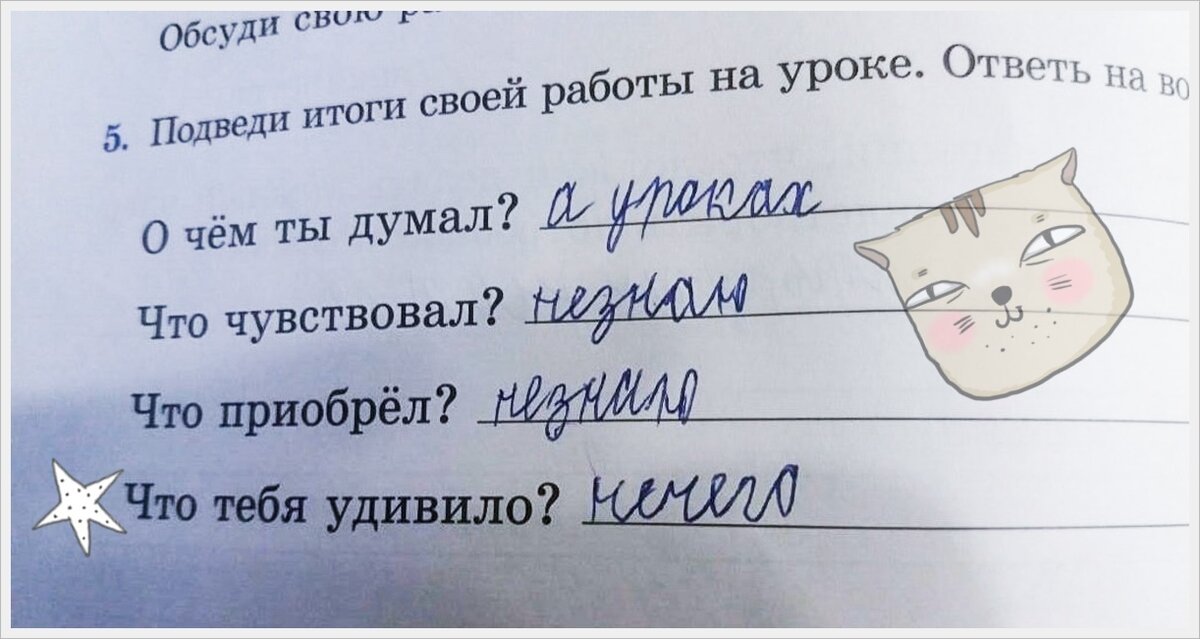 Обсуди свою
5. Подведи итоги своей работы на уроке. Ответь на во
О чём ты думал? а уроках
Что чувствовал? незнаю
Что приобрёл? незнаю
Что тебя удивило? нечего